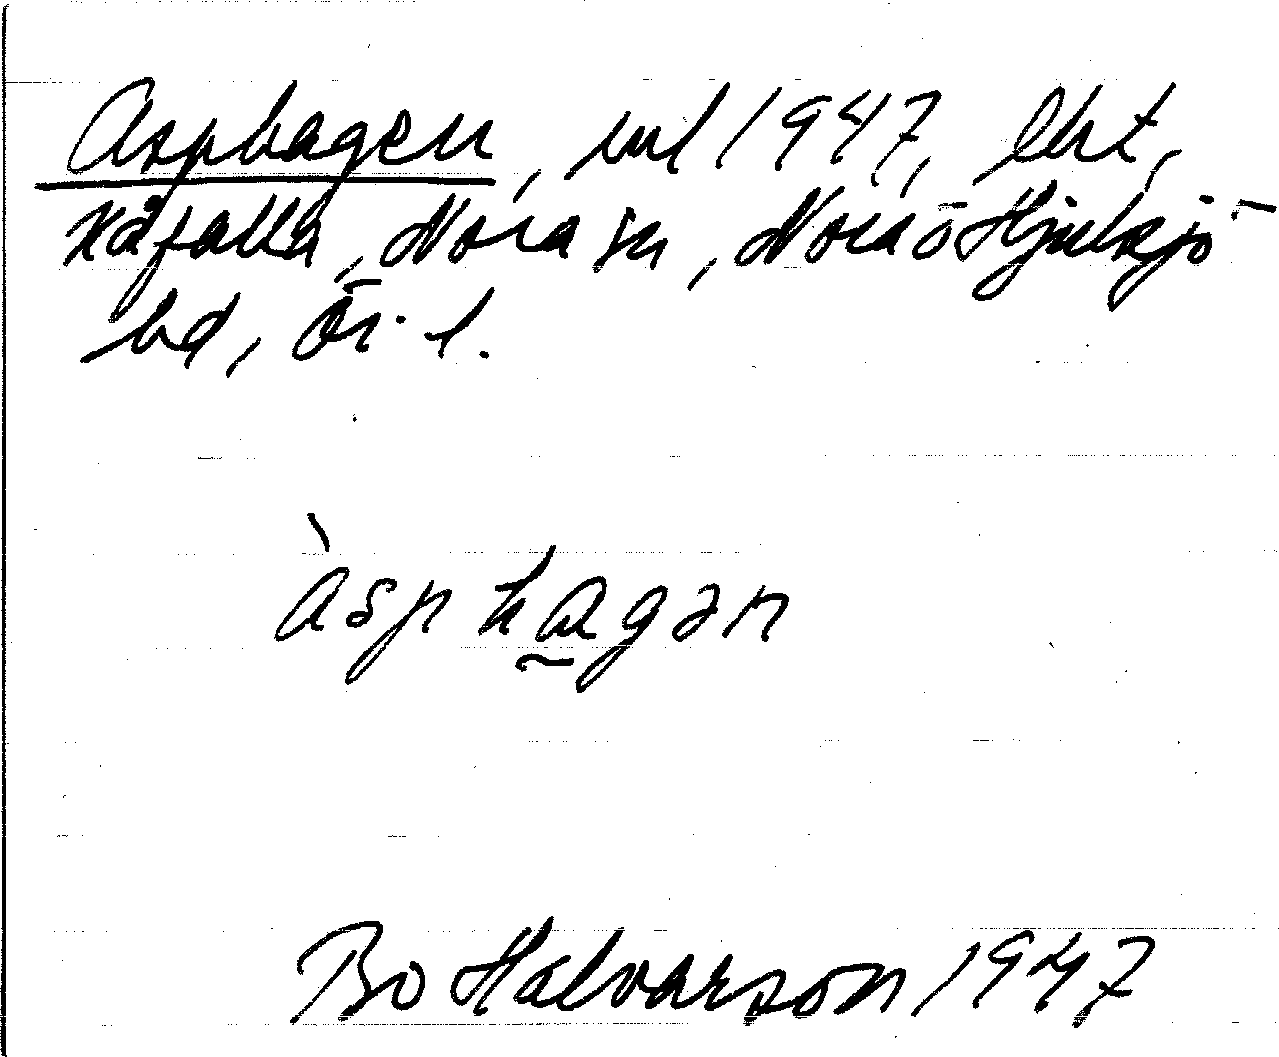 Asphagen, enl 1947, lht,
Kåfalla, Nora sn, Nora o Hjulsjö
bd, Ör. l.
àsphagən
Bo Halvarson 1947